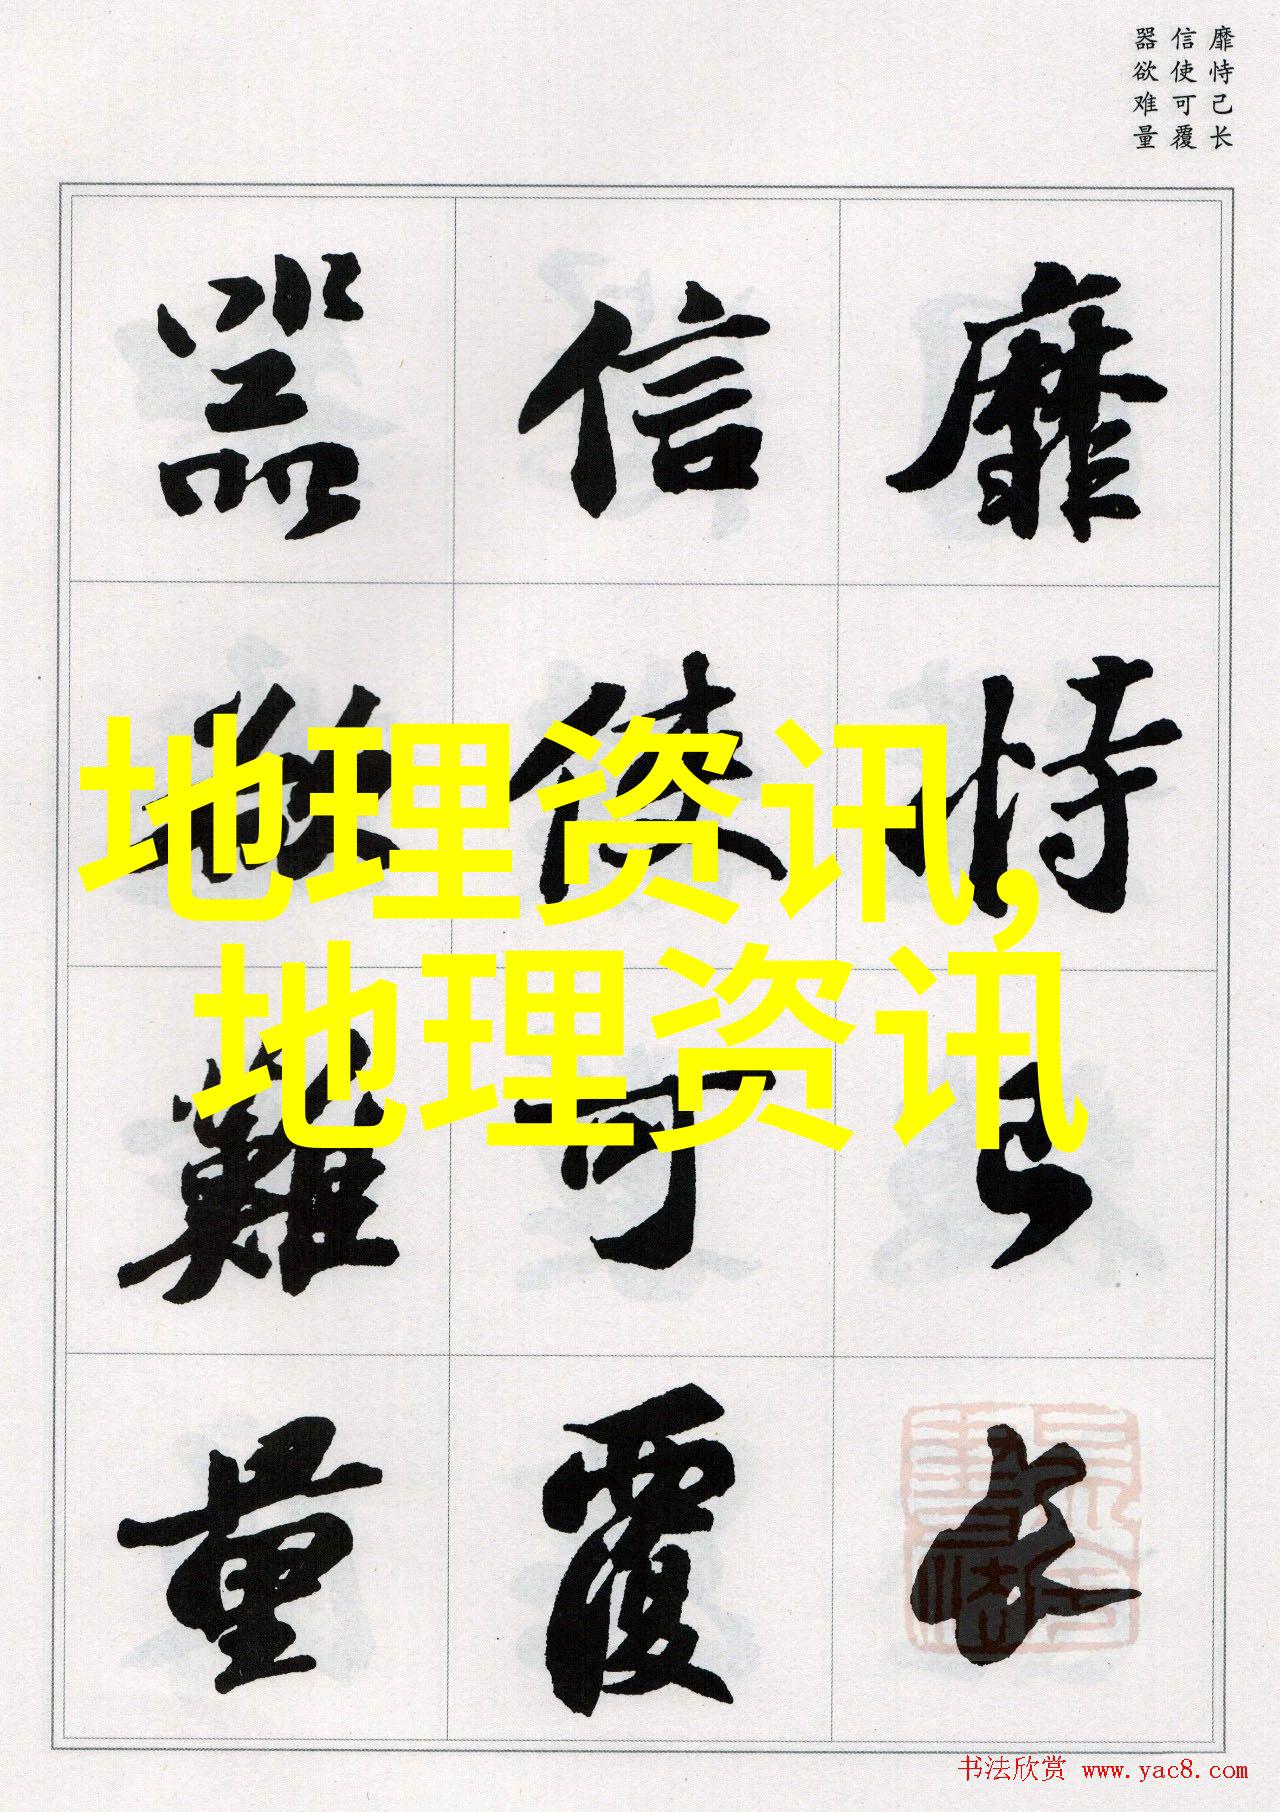 靡恃己长
信使可覆
器欲难量
靡恃己长
信使可覆
器欲難量
地理资讯,
地理资讯
书法欣赏 www.yac8.com